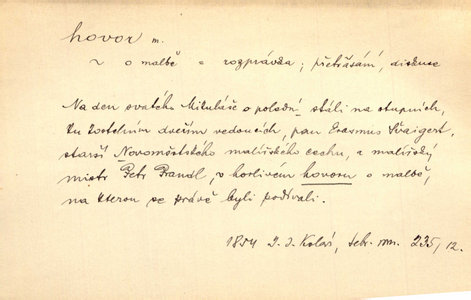 hovor m.
~ o malbě = rozprávka; přetřásání, diskuse
Na den svatého Mikuláše o poledni stáli na stupních,
ku kostelním dveřím vedoucích, pan Erasmus Švaigert,
starší Novoměstského malířského cechu, a malířský
mistr Petr Brandl, v horlivém hovoru o malbě,
na kterou se právě byli podívali.
1854 J. J. Kolár, sebr. 235/12.